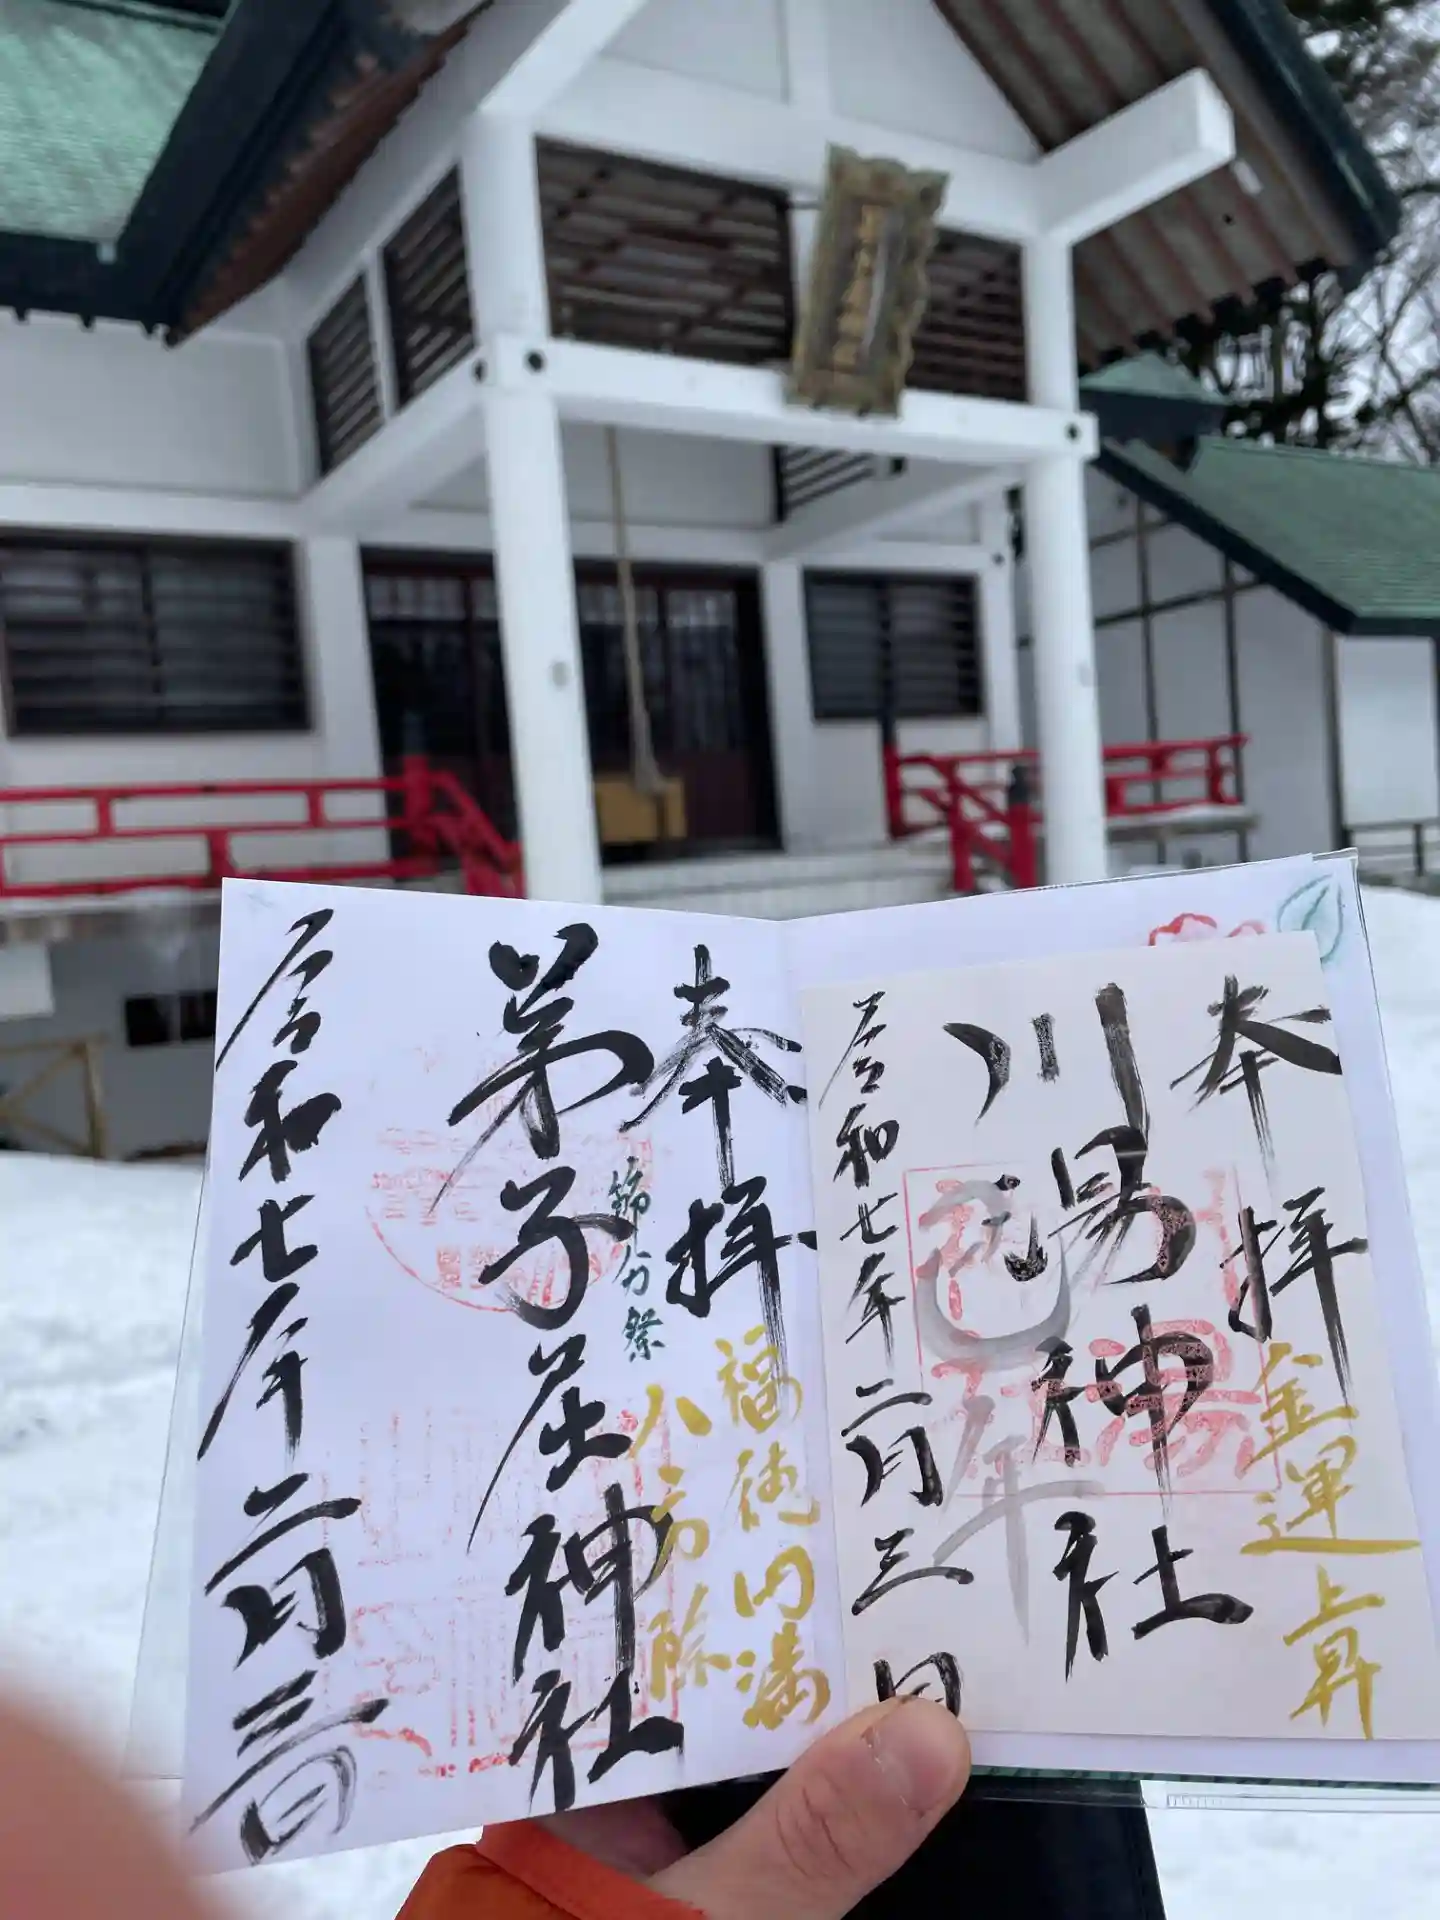 奉拝
金運上昇
川湯神社
巳年
令和七年二月三日
奉拝
福徳円満
八方除
節分祭
弟子屈神社
令和七年二月三日